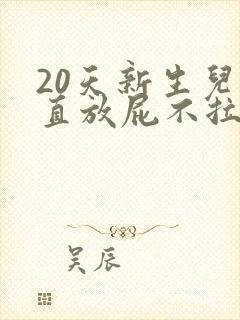 20天新生兒
直放屁不拉
吴辰